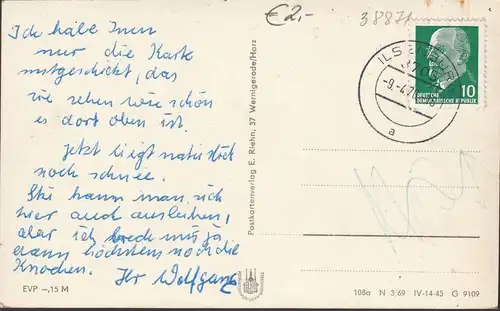 €2,-
38871
Ich habe Ihnen
nur die Karte
mitgeschickt, das
sie sehen wie schön
es dort oben ist.
Jetzt liegt natürlich
noch schnee.
Ski kann man sich
hier auch ausleihen,
aber ich breche mir ja
dann höchstens noch die
Knochen. Ihr Wolfgang
Postkartenverlag E. Riehn, 37 Wernigerode/Harz
10
DEUTSCHE
DEMOKRATISCHE REPUBLIK
a
EVP –,15 M
108a N 3/69 IV-14-45 G 9109